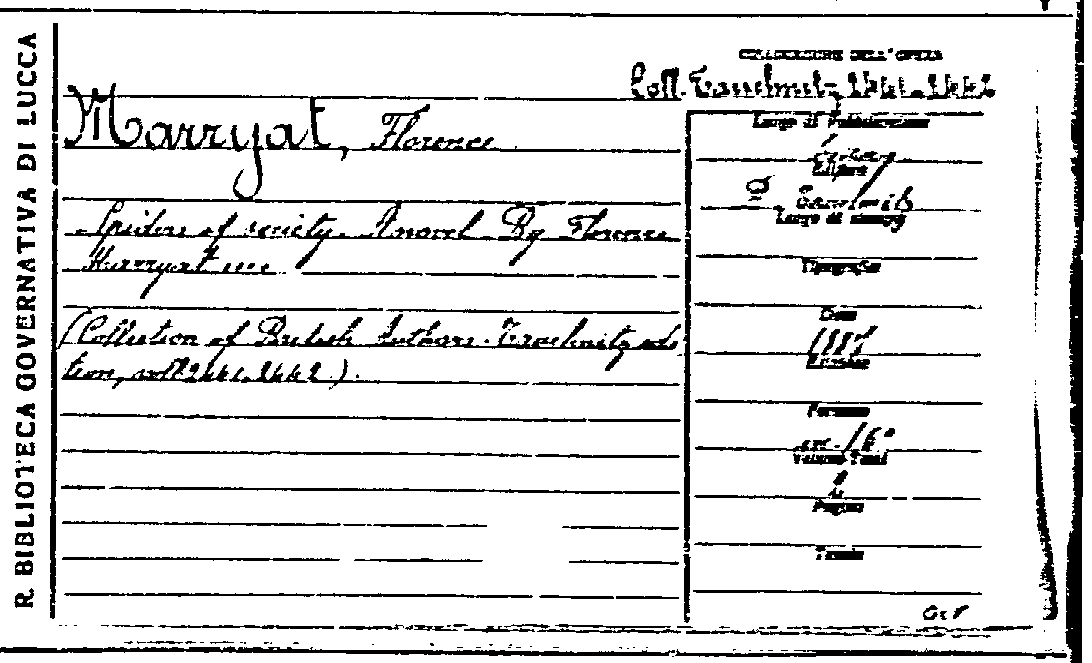 R. BIBLIOTECA GOVERNATIVA DI LUCCA
COLLOCAZIONE DELL'OPERA
Coll. Tauchnitz, 2441-2442
Marryat, Florence
Spiders of society. A novel. By Florence
Marryat ....
(Collection of British Authors. Tauchnitz edi
tion, vol. 2441-2442).
Luogo di Pubblicazione
Editore
B. Tauchnitz
Luogo di stampa
Tipografia
Data
Edizione
Formato
16°
Volumi-Tomi
Pagine
Tavole